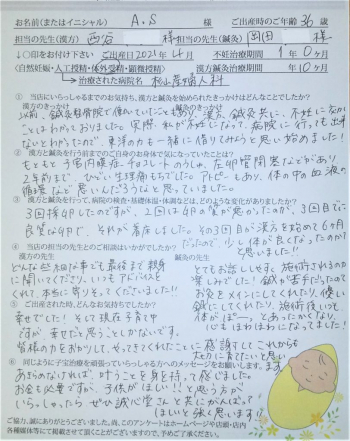 お名前(またはイニシャル) A.S 様 ご出産時のご年齢 36 歳
担当の先生(漢方) 西谷 様 担当の先生(鍼灸) 岡田 様
↓○印をお付け下さい ご出産日 2021年 4月 不妊治療期間 1年0ヶ月
(自然妊娠・人工授精・体外受精・顕微授精) 漢方鍼灸治療期間 年10ヶ月
治療された病院名 婦人科
① 当店にいらっしゃるまでのお気持ち、漢方と鍼灸を始められたきっかけはどんなことでしたか?
漢方のきっかけ 鍼灸のきっかけ
以前、鍼灸整骨院で働いていたこともあり、漢方、鍼灸共に、不妊になかいい
ことはわかっておりました。実際、私が不妊になって、病院に行っても出来
ないとわかったので、東洋の力も一緒に借りてみようと思い始めました!
② 漢方と鍼灸を行う前までのご自身のお身体で気になっていたことは?
もともと子宮内膜症、チョコレートのうしゅ、左卵管閉塞などがあり
2年前まで、ひどい生理痛もちでした。アトピーもあり、体の中の血液の
循環など悪いんだろうなと思っていました。
③ 漢方と鍼灸を行って、病院の検査・基礎体温・体調などは、どのような変化がありましたか?
3回採卵したのですが、2回は卵の質が悪かったのか、3回目に
良質な卵で、それが着床しました。その3回目が漢方を始めて6ヶ月
だったので、少し体が良くなったのかと思いました!!
④ 当店の担当の先生とのご相談はいかがでしたか?
漢方の先生 鍼灸の先生
どんな些細な事でも最後まで親身
に聞いてくださり、いつもアドバイスを
くれて、本当に寄りそってくださいました!!
とてもお話ししやすく、施術されるのが
楽しみでした!鍼が苦手だったので
お灸をメインにしてくれたり、優しい
鍼にしてくれたり、施術後いつも
体がぽーっとあったかくなり、
心もほわほわになってました!
⑤ ご出産された時、どんなお気持ちでしたか?
幸せでした!そして現在子育て中
ですが、幸せだと思うことしかないです。
皆様の力をおかりして、やってきてくれたことに感謝してこれからも
大切に育てたいと思います
⑥ 同じように子宝治療を頑張っていらっしゃる方へのメッセージをお願いします。
あきらめなければ、叶うことを身を持って感じました。
お金も必要ですが、子供がほしい!!と思う方が
いらっしゃったら ぜひ誠心堂さんと共にがんばって
ほしいと強く思います!!
ご協力、誠にありがとうございました。尚、このアンケートはホームページや店頭・店内
各種媒体等にて掲載させて頂くことがございますので、予めご了承ください。